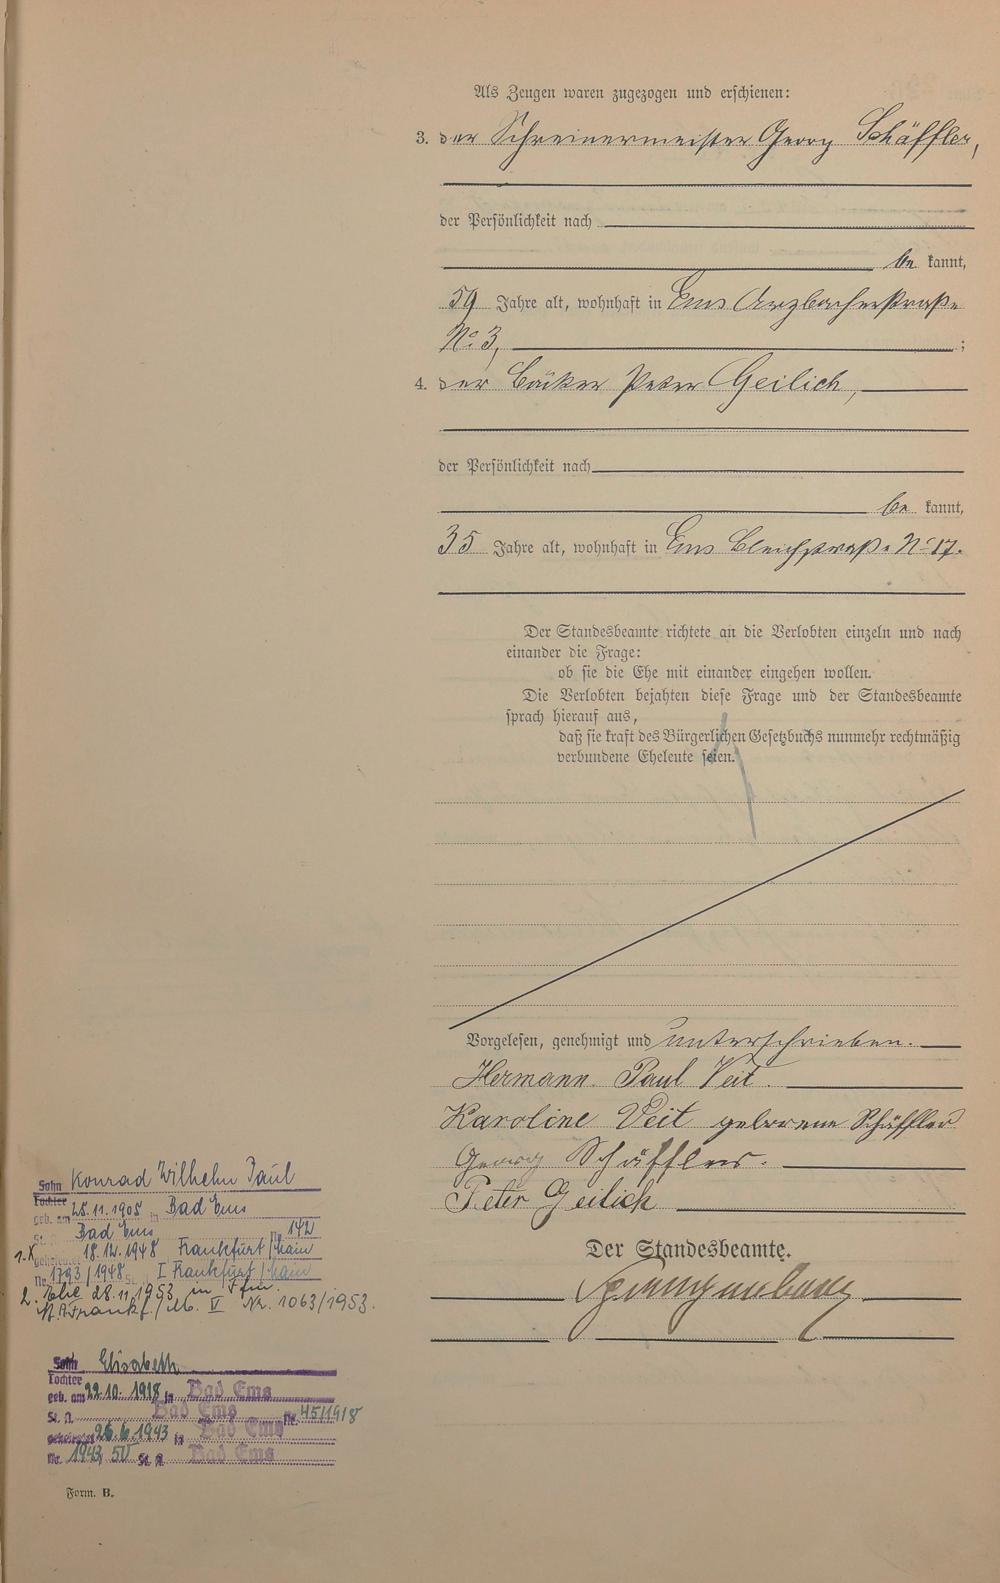 Als Zeugen waren zugezogen und erschienen:
3. der Schreinermeister Georg Schäffler,
der Persönlichkeit nach
be kannt,
59 Jahre alt, wohnhaft in Ems Arzbacherstraße
No 3, ;
4. der Bäcker Peter Geilich,
der Persönlichkeit nach
be kannt,
35 Jahre alt, wohnhaft in Ems Bleichstraße No 17.
Der Standesbeamte richtete an die Verlobten einzeln und nach
einander die Frage:
ob sie die Ehe mit einander eingehen wollen.
Die Verlobten bejahten diese Frage und der Standesbeamte
sprach hierauf aus,
daß sie kraft des Bürgerlichen Gesetzbuchs nunmehr rechtmäßig
verbundene Eheleute seien.
Vorgelesen, genehmigt und unterschrieben.
Hermann Paul Veit.
Karoline Veit geborene Schäffler
Georg Schäffler.
Peter Geilich
Der Standesbeamte.
Sohn Konrad Wilhelm Paul
Tochter
geb. am 25.11.1905 in Bad Ems
St. A. Bad Ems Nr. 142
1. X geheiratet 18.12.1948 Frankfurt/Main
Nr. 1793/1948 St. A. I Frankfurt/Main
2. Ehe 28.11.1953 in Ffm.
St.A. Frankf./M. V Nr. 1063/1953.
Sohn Elisabeth
Tochter
geb. am 22.10.1918 in Bad Ems
St. A. Bad Ems Nr. 45/1918
geheiratet 26.6.1943 in Bad Ems
Nr. 1943, 50 St. A. Bad Ems
Form. B.